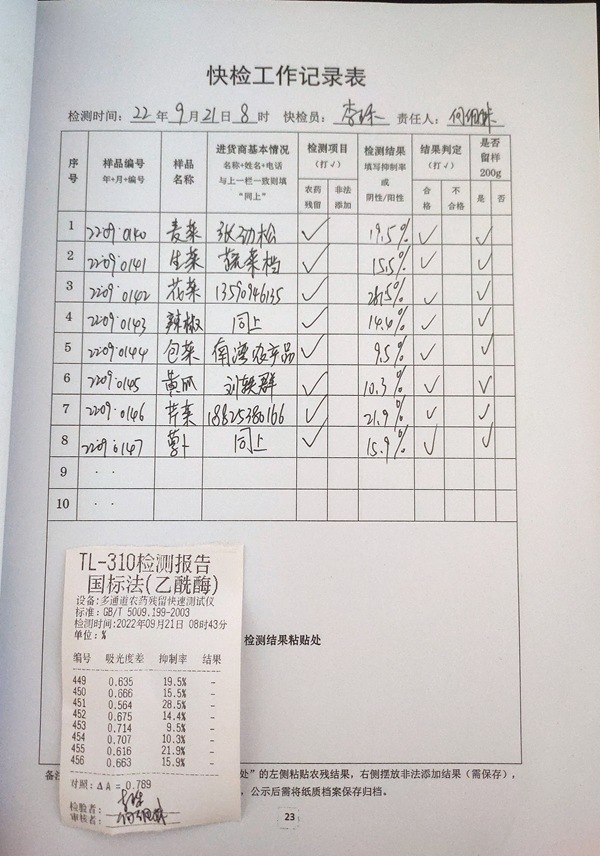 快检工作记录表
检测时间：22年9月21日8时 快检员：李珠 责任人：
序号 样品编号 年+月+编号 样品名称 进货商基本情况 名称+姓名+电话 与上一栏一致则填“同上” 检测项目（打√） 农药残留 非法添加 检测结果 填写抑制率或阴性/阳性 结果判定（打√） 合格 不合格 是否留样200g 是 否
1 2209·0140 麦菜 张劲松 √ 19.5% √ √
2 2209·0141 生菜 蔬菜档 √ 15.5% √ √
3 2209·0142 花菜 13590946135 √ 28.5% √ √
4 2209·0143 辣椒 同上 √ 14.4% √ √
5 2209·0144 包菜 南湾农产品 √ 9.5% √ √
6 2209·0145 黄瓜 刘轶群 √ 10.3% √ √
7 2209·0146 芹菜 18825380166 √ 21.9% √ √
8 2209·0147 萝卜 同上 √ 15.9% √ √
9 · ·
10 · ·
检测结果粘贴处
TL-310检测报告
国标法(乙酰酶)
设备:多通道农药残留快速测试仪
标准: GB/T 5009.199-2003
检测时间:2022年09月21日 08时43分
单位: %
编号 吸光度差 抑制率 结果
449 0.635 19.5% -
450 0.666 15.5% -
451 0.564 28.5% -
452 0.675 14.4% -
453 0.714 9.5% -
454 0.707 10.3% -
455 0.616 21.9% -
456 0.663 15.9% -
对照: ΔA = 0.789
检验者: 李珠
审核者:
备注 处”的左侧粘贴农残结果，右侧摆放非法添加结果（需保存），
，公示后需将纸质档案保存归档。
23